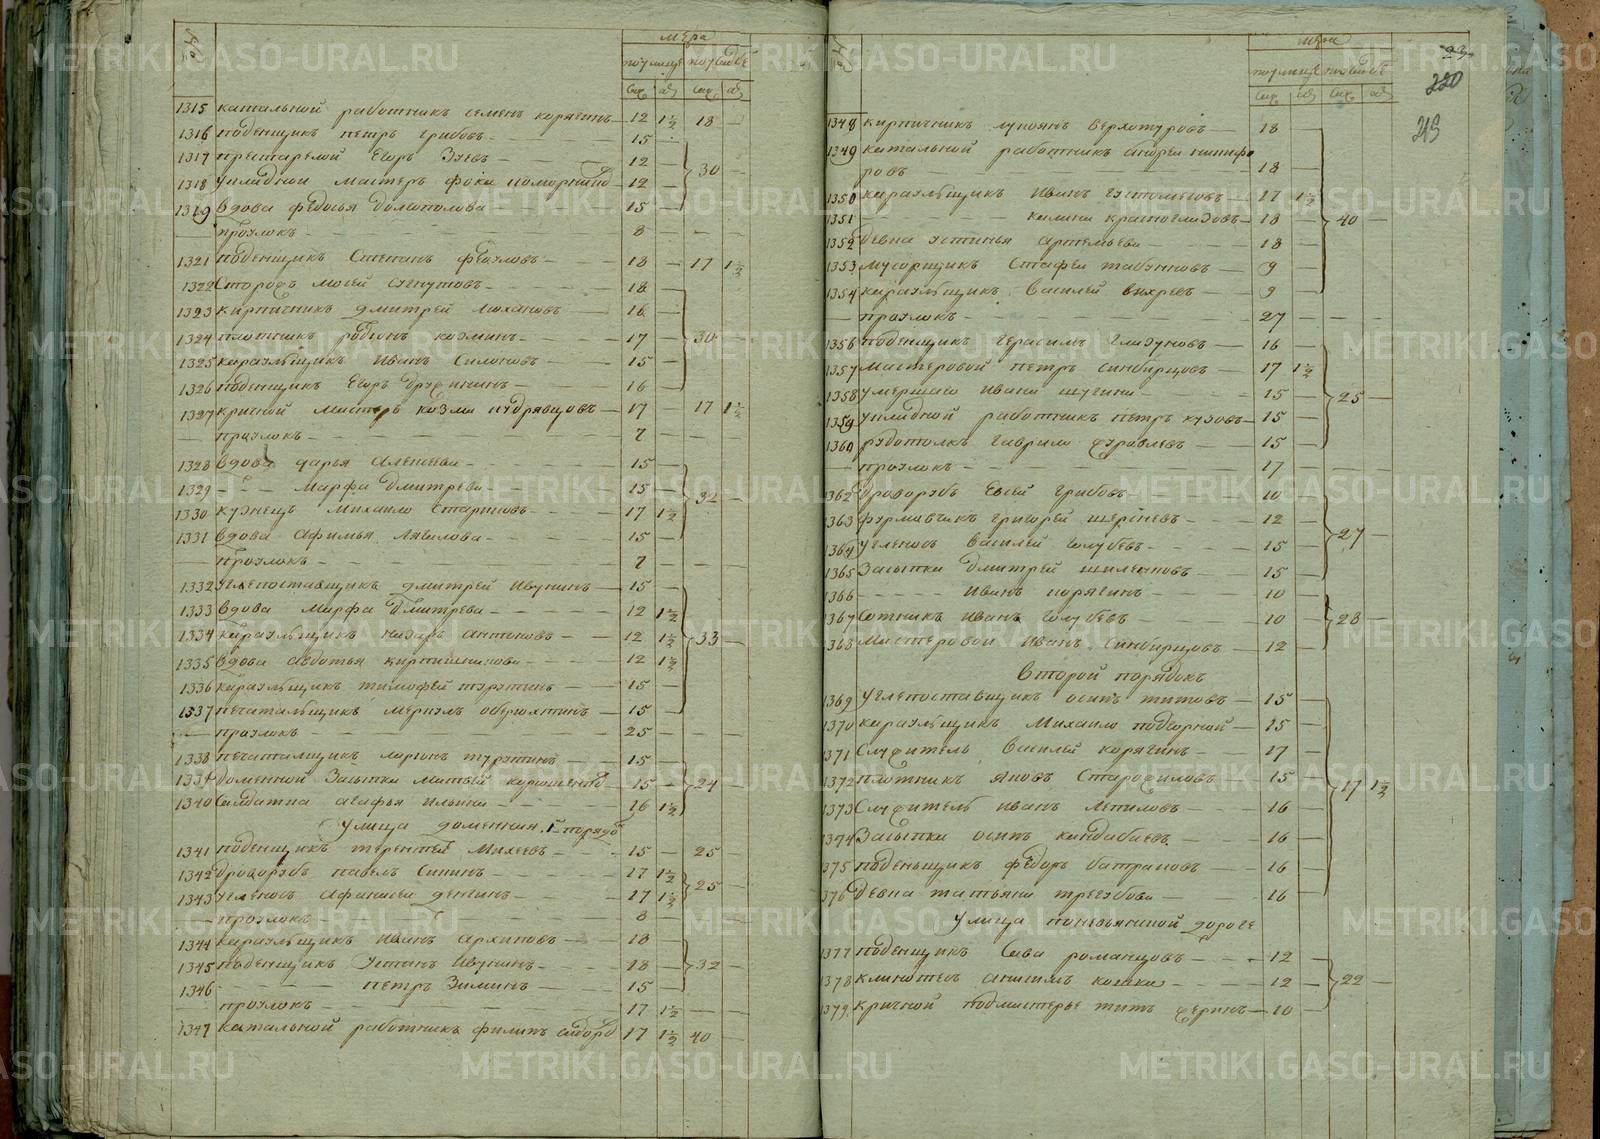 №
мѣра
по улице по усадьбѣ
саж. ар. саж. ар.
1315 катальной работникъ семенъ корягинъ — 12 1½ 18 —
1316 поденщикъ петръ грибовъ — 15 —
1317 престарелой Егоръ Зуевъ — 12 — 30 —
1318 Укладной мастеръ фока — 12 —
1319 вдова федосья долгополова — 15 —
— проулокъ — 8 — — —
1321 поденщикъ Степанъ — 18 — 17 1½
1322 Сторожъ мосей — 18 —
1323 кирпичникъ дмитрей — 16 — 30 —
1324 плотникъ родионъ козминъ — 17 —
1325 караульщикъ Иванъ — 15 —
1326 поденщикъ Егоръ дружининъ — 16 —
1327 кричной мастеръ козма кудрявцовъ — 17 17 1½
— проулокъ — 7 — — —
1328 вдова дарья Алексеева — 15 —
1329 — " — Марфа Дмитрева — 15 — 32 —
1330 кузнецъ Михайло Стариковъ — 17 1½
1331 вдова Афимья — 15 —
— проулокъ — 7 — — —
1332 Углепоставщикъ дмитрей Ивукинъ — 15 —
1333 вдова Марфа Дмитрева — 12 1½
1334 караульщикъ назаръ антоновъ — 12 1½ 33 —
1335 вдова авдотья кирпишникова — 12 1½
1336 караульщикъ тимофей — 15 —
1337 печатальщикъ меркулъ оберюхтинъ — 15 —
— проулокъ — 25 — — —
1338 печатальщикъ ларионъ — 15 —
1339 доменной Засыпка матвей — 15 — 24 —
1340 Салдатка агафья Ильина — 16 1½
Улица доменная 1й порядо
1341 поденщикъ терентей Михеевъ — 15 — 25 —
1342 дроворубъ павелъ Сининъ — 17 1½ 25 —
1343 угленосъ Афанасей — 17 1½
— проулокъ — 8 — — —
1344 караульщикъ Иванъ архиповъ — 18
1345 поденщикъ Ивукинъ — 18 — 32 —
1346 — петръ Зиминъ — 15 —
проулокъ — 17 1½ — —
1347 катальной работникъ филипъ — 17 1½ 40 —
№
мѣра
по улице по усадьбѣ
саж. ар. саж. ар.
220
219
1348 кирпичникъ лукоянъ верхотуровъ — 18 —
1349 катальной работникъ андрей никифо
ровъ — 18 —
1350 караульщикъ Иванъ — 17 1½
1351 — калина красноглазовъ — 18 — 40 —
1352 девка устинья артемьева — 18 —
1353 мусорщикъ табунковъ — 9 —
1354 караульщикъ василей вихревъ — 9 —
— проулокъ — 27 — — —
1356 поденщикъ герасимъ глазуновъ — 16 —
1357 мастеровой петръ синбирцовъ — 17 1½
1358 умершаго Ивана шугина — 15 — 25 —
1359 укладной работникъ петръ — 15 —
1360 рудотолкъ гаврило журавлевъ — 15 —
— проулокъ — 17 — — —
1362 дроворубъ Евсей грибовъ — 10 —
1363 фурмавщикъ григорей — 12 — 27 —
1364 угленосъ василей голубевъ — 15 —
1365 Засыпка дмитрей — 15 —
1366 — Иванъ корягинъ — 10 —
1367 Сотникъ Иванъ голубевъ — 10 — 28 —
1368 мастеровой Иванъ Синбирцовъ — 12 —
Второй порядокъ
1369 углепоставщикъ осипъ титовъ — 15 —
1370 караульщикъ Михайло подгорной — 15 —
1371 Служитель василей корягинъ — 17 —
1372 плотникъ яковъ Старожиловъ — 15 — 17 1½
1373 Служитель иванъ — 16 —
1374 Засыпка осипъ — 16 —
1375 поденьщикъ федоръ батраковъ — 16 —
1376 девка татьяна трегубова — 16 —
Улица по невьянской дороге
1377 поденщикъ Сава романцовъ — 12 —
1378 анисимъ — 12 — 22 —
1379 кричной подмастерье титъ — 10 —
METRIKI.GASO-URAL.RU